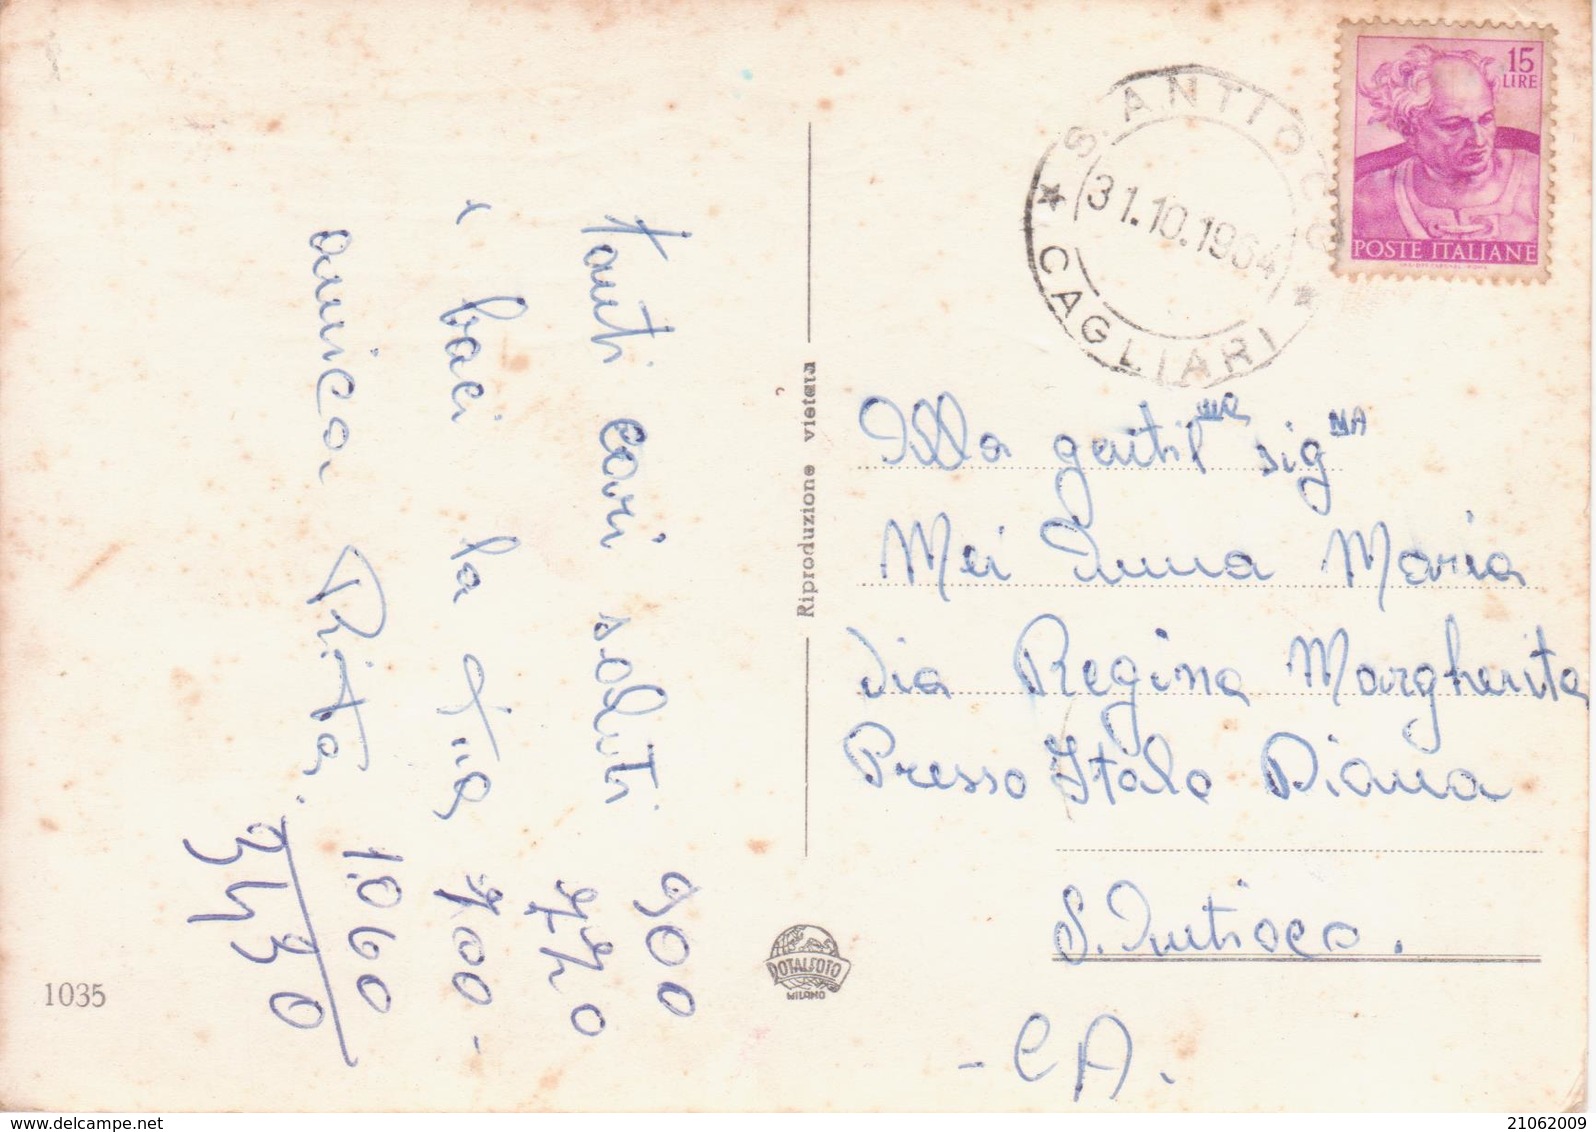 Tanti cari saluti
e baci la tua
amica Rita.
900
770
700-
1.060
3430
1035
Riproduzione vietata
ROTALFOTO
MILANO
S. ANTIOCO
31.10.1964
CAGLIARI
15
LIRE
POSTE ITALIANE
Alla gentil.ma sig.na
Mei Anna Maria
Via Regina Margherita
Presso Italo Diana
S. Antioco.
- CA.
www.delcampe.net
21062009